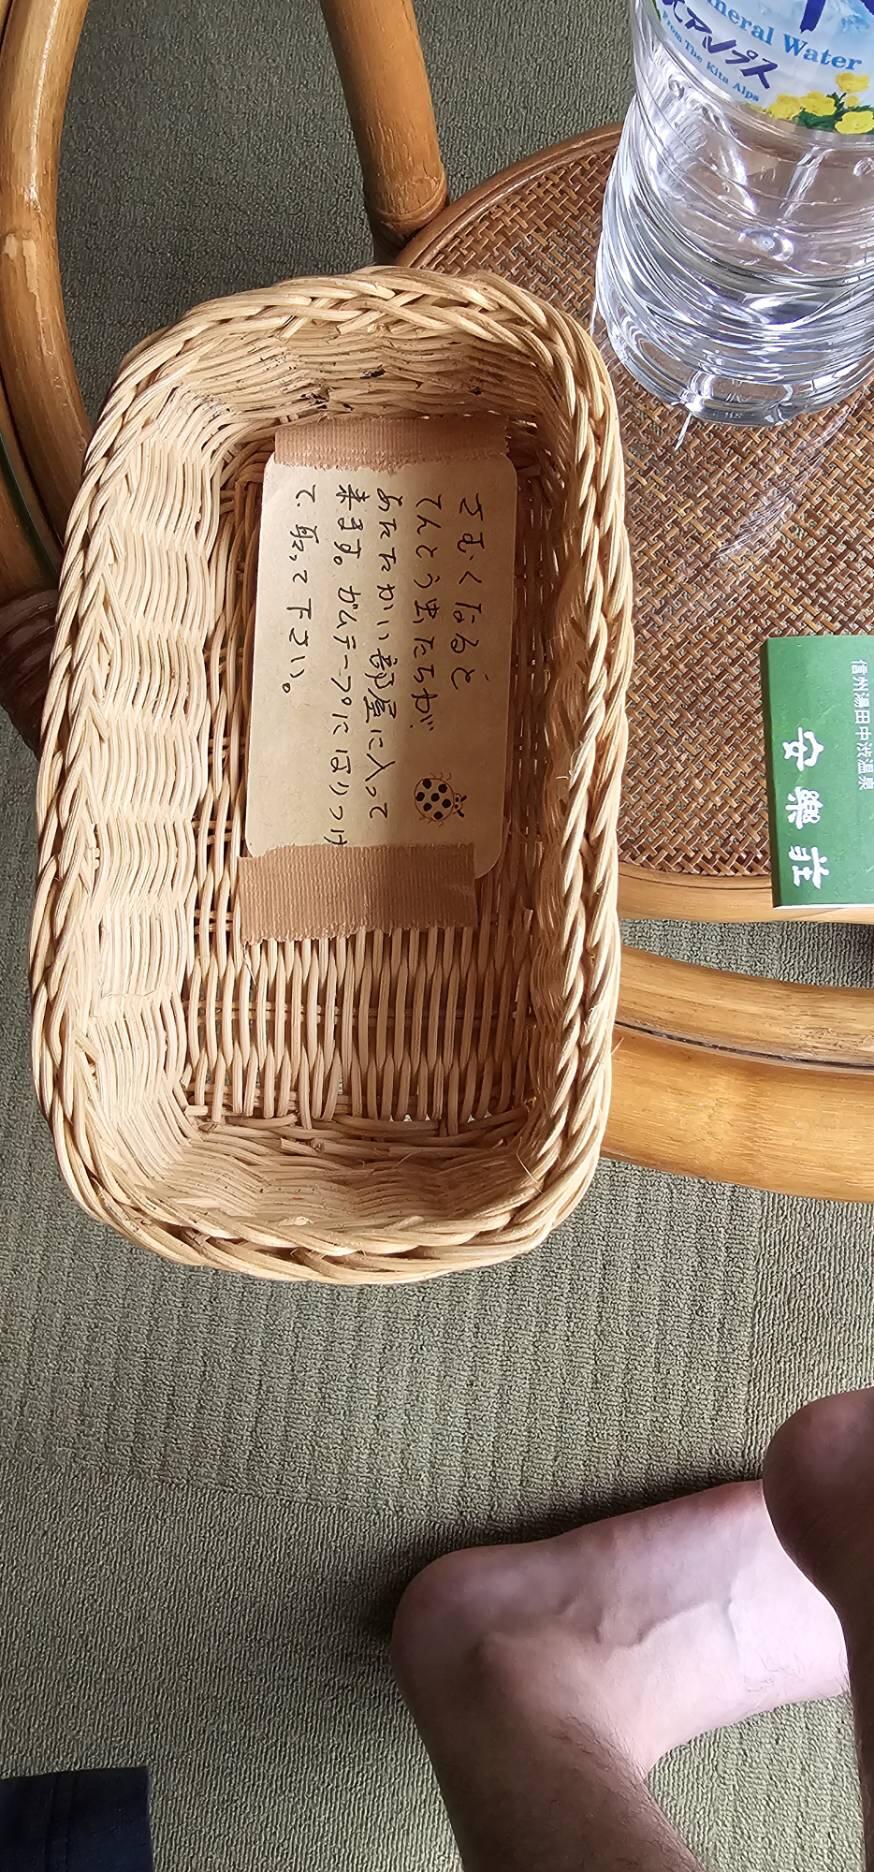 さむくなると
てんとう虫たちが
あたたかい部屋に入って
来ます。ガムテープにはりつけ
て、取って下さい。
Mineral Water
アルプス
From The Kita Alps
信州湯田中渋温泉
安樂荘